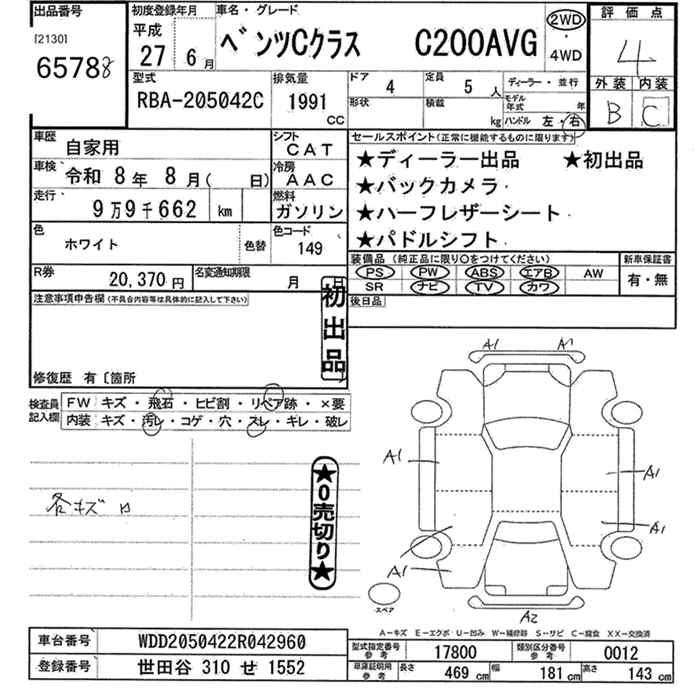 出品番号
[2130]
65788
初度登録年月
平成
27 6月
車名・グレード
ベンツCクラス C200AVG
2WD
・
4WD
評価点
4
外装 内装
B C
型式
RBA-205042C
排気量
1991
cc
ドア 4
定員 5 人
ディーラー・並行
形状
積載 kg
モデル年式 年
ハンドル 左・右
車歴 自家用
シフト
CAT
車検 令和 8年 8月( 日)
冷房
AAC
走行 9万9千662 km
燃料
ガソリン
色 ホワイト
色替
色コード
149
R券 20,370円
名変通知期限 月 日
セールスポイント(正常に機能するものに限ります)
★ディーラー出品 ★初出品
★バックカメラ
★ハーフレザーシート
★パドルシフト
装備品(純正品に限り○をつけてください)
PS PW ABS エアB AW
SR ナビ TV カワ
新車保証書
有・無
後日品
注意事項申告欄(不具合内容等は具体的に記入して下さい)
初出品
修復歴 有〔箇所
検査員記入欄
FW キズ・飛石・ヒビ割・リペア跡・×要
内装 キズ・汚レ・コゲ・穴・スレ・キレ・破レ
各キズ
★0売切り★
A1 A1
A1 A1
A1
A1
A2
スペア
A-キズ E-エクボ U-凹み W-補修跡 S-サビ C-腐食 XX-交換済
車台番号 WDD2050422R042960
登録番号 世田谷 310 せ 1552
型式指定番号
参考
17800
類別区分番号
参考
0012
車庫証明用
参考
長さ 469 cm 幅 181 cm 高さ 143 cm